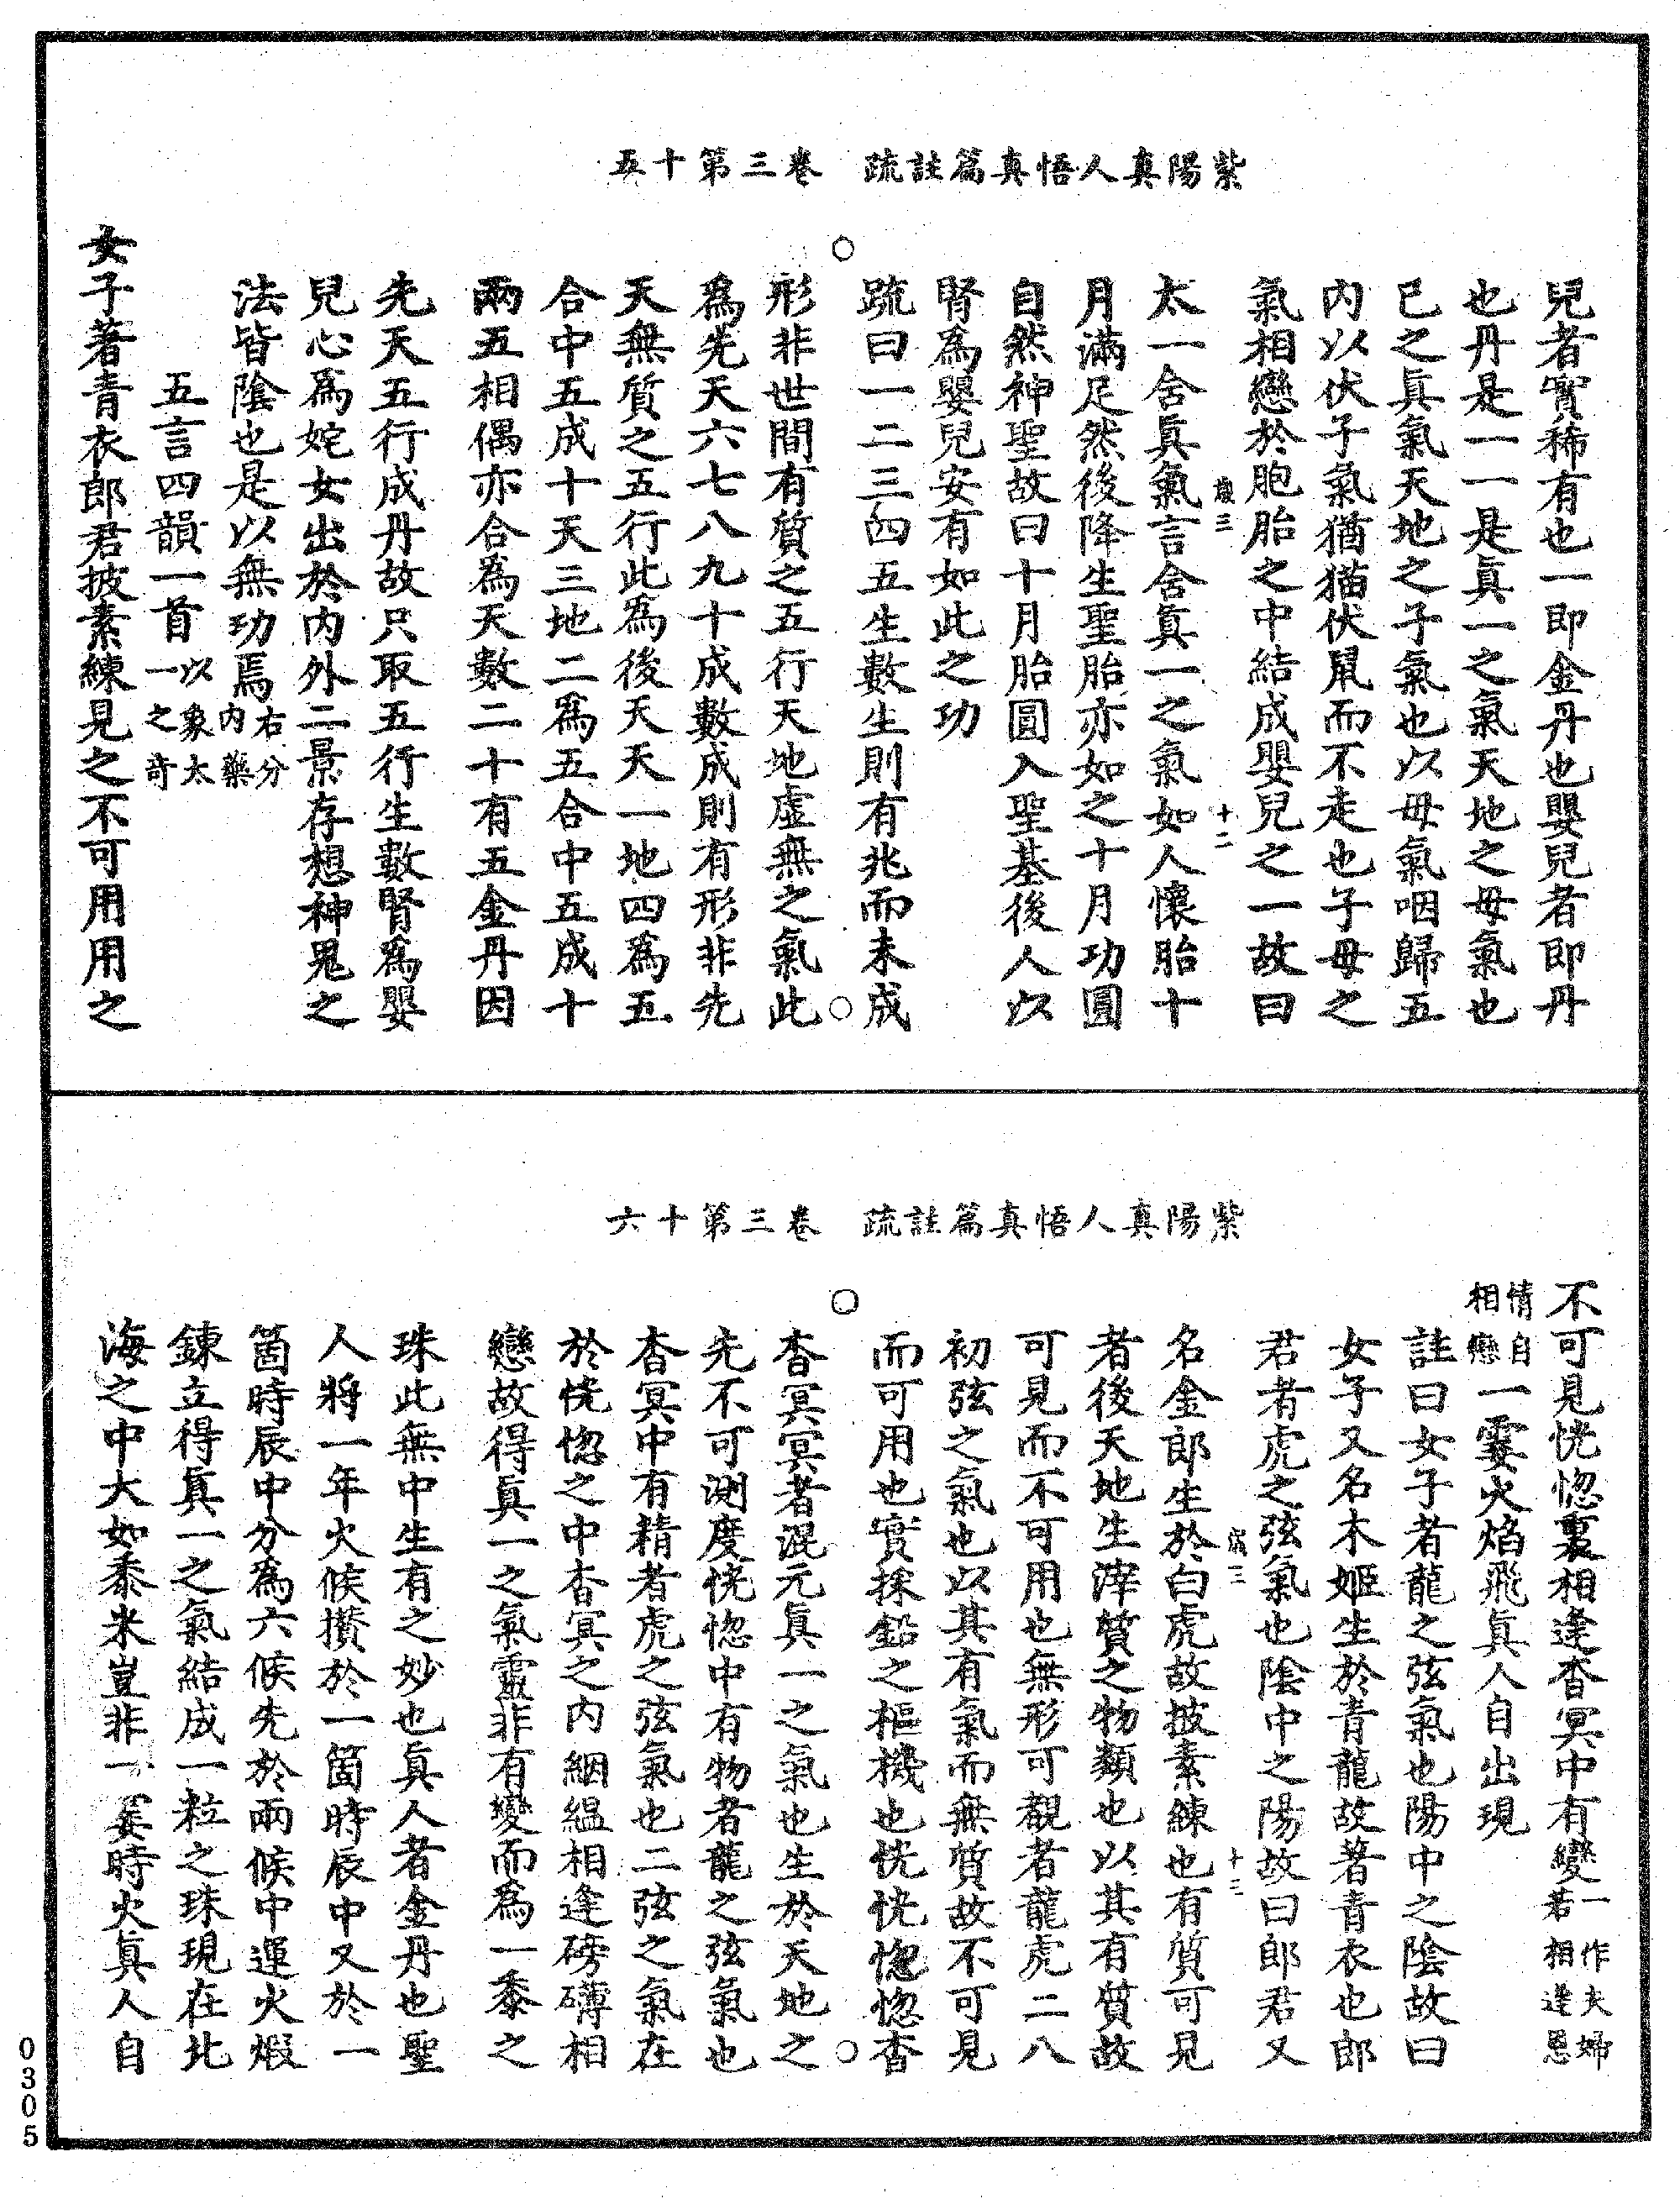 紫陽真人悟真篇註疏　卷三第十五
兒者實稀有也一即金丹也嬰兒者即丹
也丹是一一是眞一之氣天地之母氣也
已之眞氣天地之子氣也以母氣咽歸五
内以伏子氣猶猫伏鼠而不走也子母之
氣相戀於胞胎之中結成嬰兒之一故曰
歲三　十二
太一含眞氣言含眞一之氣如人懷胎十
月滿足然後降生聖胎亦如之十月功圓
自然神聖故曰十月胎圓入聖基後人以
腎爲嬰兒安有如此之功
疏曰一二三四五生數生則有兆而未成
形非世間有質之五行天地虛無之氣此
爲先天六七八九十成數成則有形非先
天無質之五行此爲後天天一地四爲五
合中五成十天三地二爲五合中五成十
兩五相偶亦合爲天數二十有五金丹因
先天五行成丹故只取五行生數腎爲嬰
兒心爲姹女出於内外二景存想神鬼之
法皆陰也是以無功焉右分内藥
五言四韻一首以象太一之奇
女子著青衣郎君披素練見之不可用用之
紫陽真人悟真篇註疏　卷三第十六
不可見恍惚裏相逢杳冥中有變一作夫婦若相逢恩
情自相戀一霎火焰飛眞人自出現
註曰女子者龍之弦氣也陽中之陰故曰
女子又名木姬生於青龍故著青衣也郎
君者虎之弦氣也陰中之陽故曰郎君又
歲三　十三
名金郎生於白虎故披素練也有質可見
者後天地生滓質之物類也以其有質故
可見而不可用也無形可觀者龍虎二八
初弦之氣也以其有氣而無質故不可見
而可用也實採鉛之樞機也恍恍惚惚杳
杳冥冥者混元眞一之氣也生於天地之
先不可測度恍惚中有物者龍之弦氣也
杳冥中有精者虎之弦氣也二弦之氣在
於恍惚之中杳冥之内絪縕相逢磅礴相
戀故得眞一之氣靈非有變而爲一黍之
珠此無中生有之妙也眞人者金丹也聖
人將一年火候攢於一箇時辰中又於一
箇時辰中分爲六候先於兩候中運火煅
鍊立得眞一之氣結成一粒之珠現在北
海之中大如黍米豈非一霎時火眞人自
0305